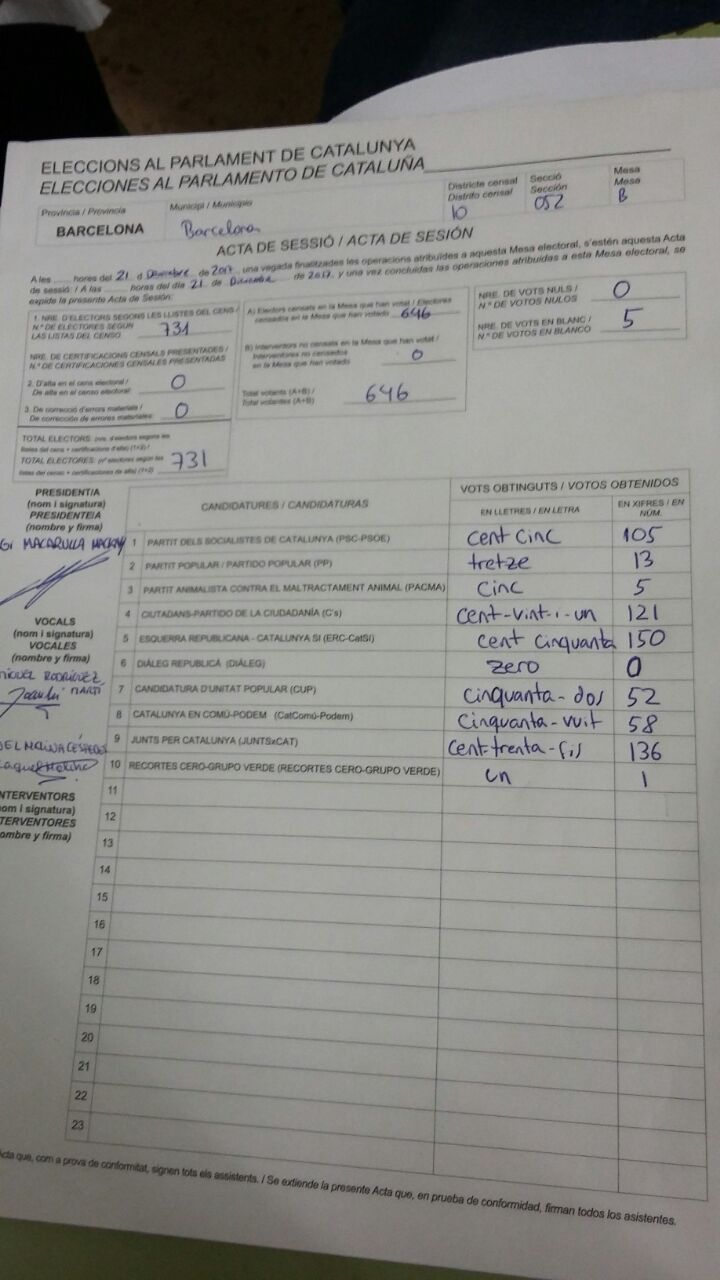 ELECCIONS AL PARLAMENT DE CATALUNYA
ELECCIONES AL PARLAMENTO DE CATALUÑA
Provincia / Provincia
BARCELONA
Municipi / Municipio
Barcelona
Districte censal
Distrito censal
10
Secció
Sección
052
Mesa
Mesa
B
ACTA DE SESSIÓ / ACTA DE SESIÓN
A les ___ hores del 21 d Desembre de 2017, una vegada finalitzades les operacions atribuïdes a aquesta Mesa electoral, s'estén aquesta Acta
de sessió: / A las ___ horas del día 21 de de 2017, y una vez concluidas las operaciones atribuidas a esta Mesa electoral, se
expide la presente Acta de Sesión:
1. NRE. D'ELECTORS SEGONS LES LLISTES DEL CENS /
N.º DE ELECTORES SEGÚN
LAS LISTAS DEL CENSO
731
NRE. DE CERTIFICACIONS CENSALS PRESENTADES /
N.º DE CERTIFICACIONES CENSALES PRESENTADAS
2. D'alta en el cens electoral /
De alta en el censo electoral:
0
3. De correcció d'errors materials /
De corrección de errores materiales:
0
TOTAL ELECTORS: (nre. d'electors segons les
llistes del cens + certificacions d'alta) (1+2) /
TOTAL ELECTORES: (nº electores según las
listas del censo + certificaciones de alta) (1+2)
731
A) Electors censats en la Mesa que han votat / Electores
censados en la Mesa que han votado
646
B) Interventors no censats en la Mesa que han votat /
Interventores no censados
en la Mesa que han votado
0
Total votants (A+B) /
Total votantes (A+B)
646
NRE. DE VOTS NULS /
N.º DE VOTOS NULOS
0
NRE. DE VOTS EN BLANC /
N.º DE VOTOS EN BLANCO
5
PRESIDENT/A
(nom i signatura)
PRESIDENTE/A
(nombre y firma)
MACARULLA
VOCALS
(nom i signatura)
VOCALES
(nombre y firma)
RODRÍGUEZ
MARTÍ
MOLINA CÉSPEDES
INTERVENTORS
(nom i signatura)
INTERVENTORES
(nombre y firma)
CANDIDATURES / CANDIDATURAS
VOTS OBTINGUTS / VOTOS OBTENIDOS
EN LLETRES / EN LETRA
EN XIFRES / EN NÚM.
1 PARTIT DELS SOCIALISTES DE CATALUNYA (PSC-PSOE) cent cinc 105
2 PARTIT POPULAR / PARTIDO POPULAR (PP) tretze 13
3 PARTIT ANIMALISTA CONTRA EL MALTRACTAMENT ANIMAL (PACMA) cinc 5
4 CIUTADANS-PARTIDO DE LA CIUDADANÍA (C's) cent-vint-i-un 121
5 ESQUERRA REPUBLICANA - CATALUNYA SÍ (ERC-CatSí) cent cinquanta 150
6 DIÀLEG REPUBLICÀ (DIÀLEG) zero 0
7 CANDIDATURA D'UNITAT POPULAR (CUP) cinquanta-dos 52
8 CATALUNYA EN COMÚ-PODEM (CatComú-Podem) cinquanta-vuit 58
9 JUNTS PER CATALUNYA (JUNTSxCAT) cent-trenta-sis 136
10 RECORTES CERO-GRUPO VERDE (RECORTES CERO-GRUPO VERDE) un 1
11
12
13
14
15
16
17
18
19
20
21
22
23
Acta que, com a prova de conformitat, signen tots els assistents. / Se extiende la presente Acta que, en prueba de conformidad, firman todos los asistentes.